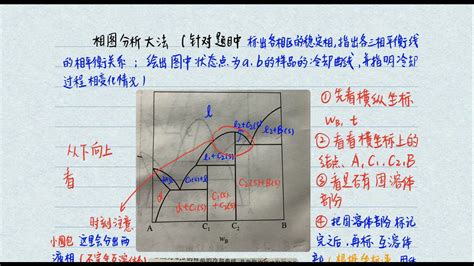 相图分析大法 (针对题目中 标出各相区的稳定相,指出各三相平衡线
的相平衡关系; 绘出图中状态点为a、b的样品的冷却曲线,并指明冷却
过程相变化情况)
①先看横纵坐标
wB, t
②看看横坐标上的
结点 A, C1, C2, B
③看是否有固溶体
部分
④把固溶体部分标记
完之后,再标互溶体
从下向上
看
时刻注意
小圆包 这里会分出两
液相
l
l2+C2(s)
l2+B(s)
l1+C2(s)
C1(s)+l
C2(s)+B(s)
C1(s)
+C2(s)
α+C1(s)
A
C1
C2
B
wB